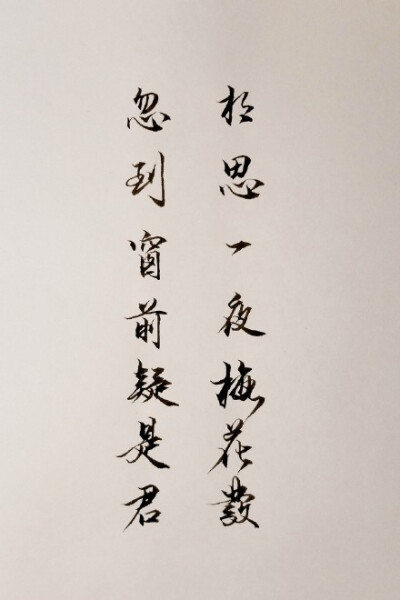 相思一夜梅花發
忽到窗前疑是君